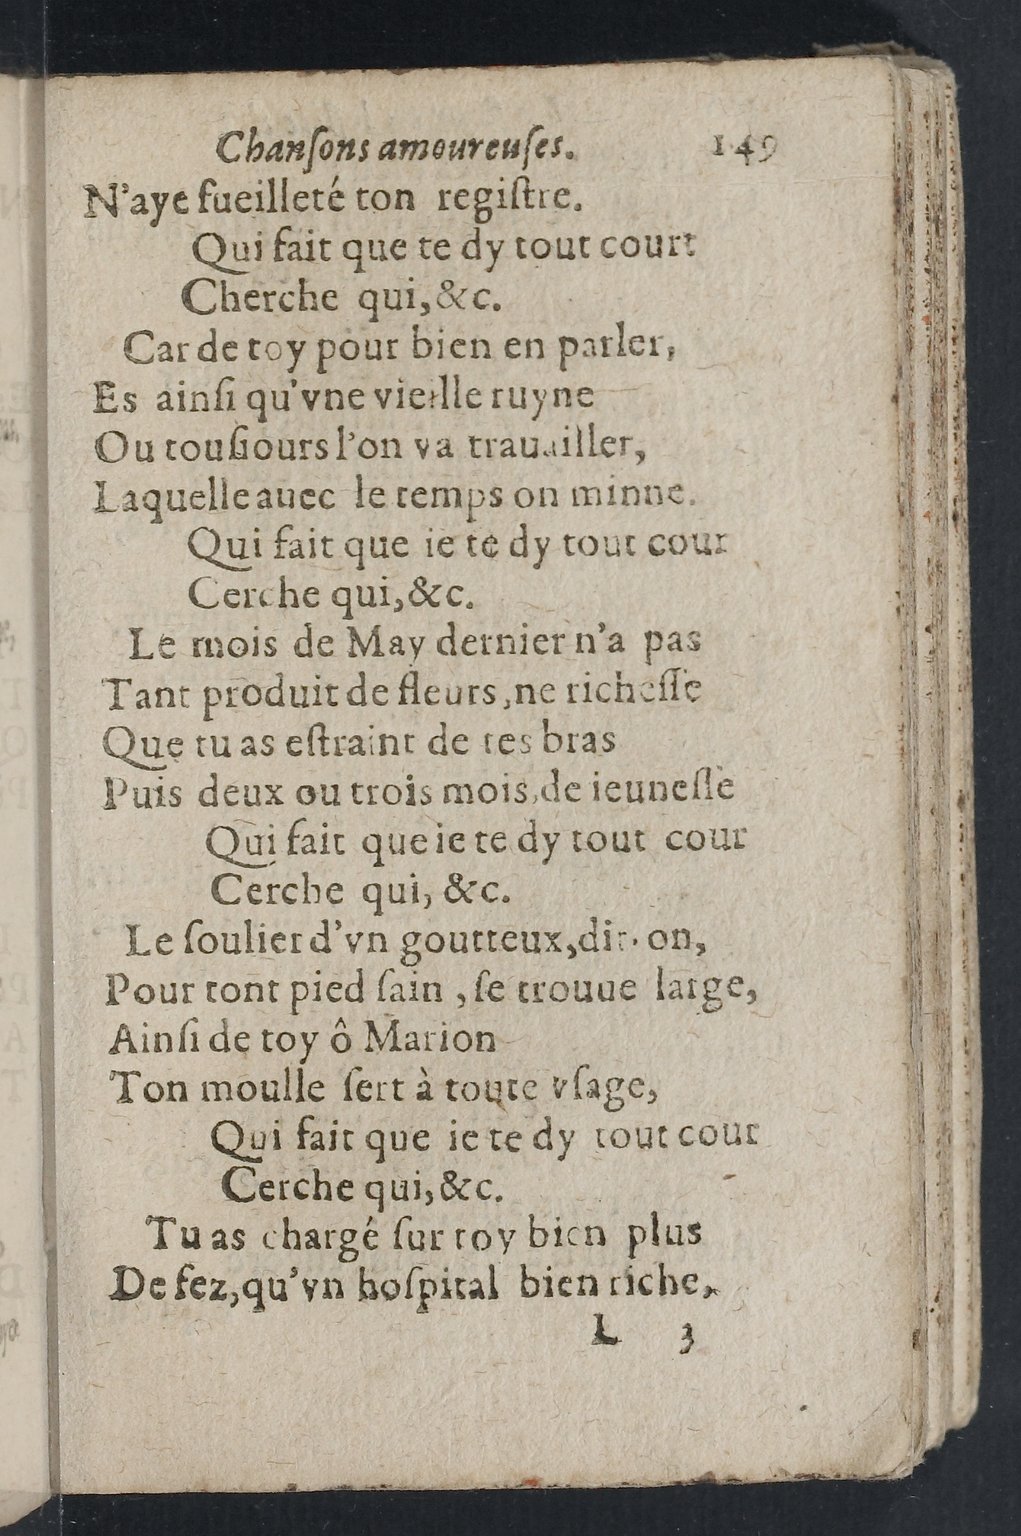 Chanſons amoureuſes. 149
N'aye fueilleté ton regiſtre.
Qui fait que te dy tout court
Cherche qui,&c.
Car de toy pour bien en parler,
Es ainſi qu'vne vieille ruyne
Ou touſiours l'on va trauailler,
Laquelle auec le temps on minne.
Qui fait que ie te dy tout cour
Cerche qui,&c.
Le mois de May dernier n'a pas
Tant produit de fleurs,ne richeſſe
Que tu as eſtraint de tes bras
Puis deux ou trois mois,de ieuneſſe
Qui fait que ie te dy tout cour
Cerche qui, &c.
Le ſoulier d'vn goutteux,dit-on,
Pour tont pied ſain , ſe trouue large,
Ainſi de toy ô Marion
Ton moulle ſert à toute vſage,
Qui fait que ie te dy tout cour
Cerche qui,&c.
Tu as chargé ſur toy bien plus
De fez,qu'vn hoſpital bien riche,
L 3